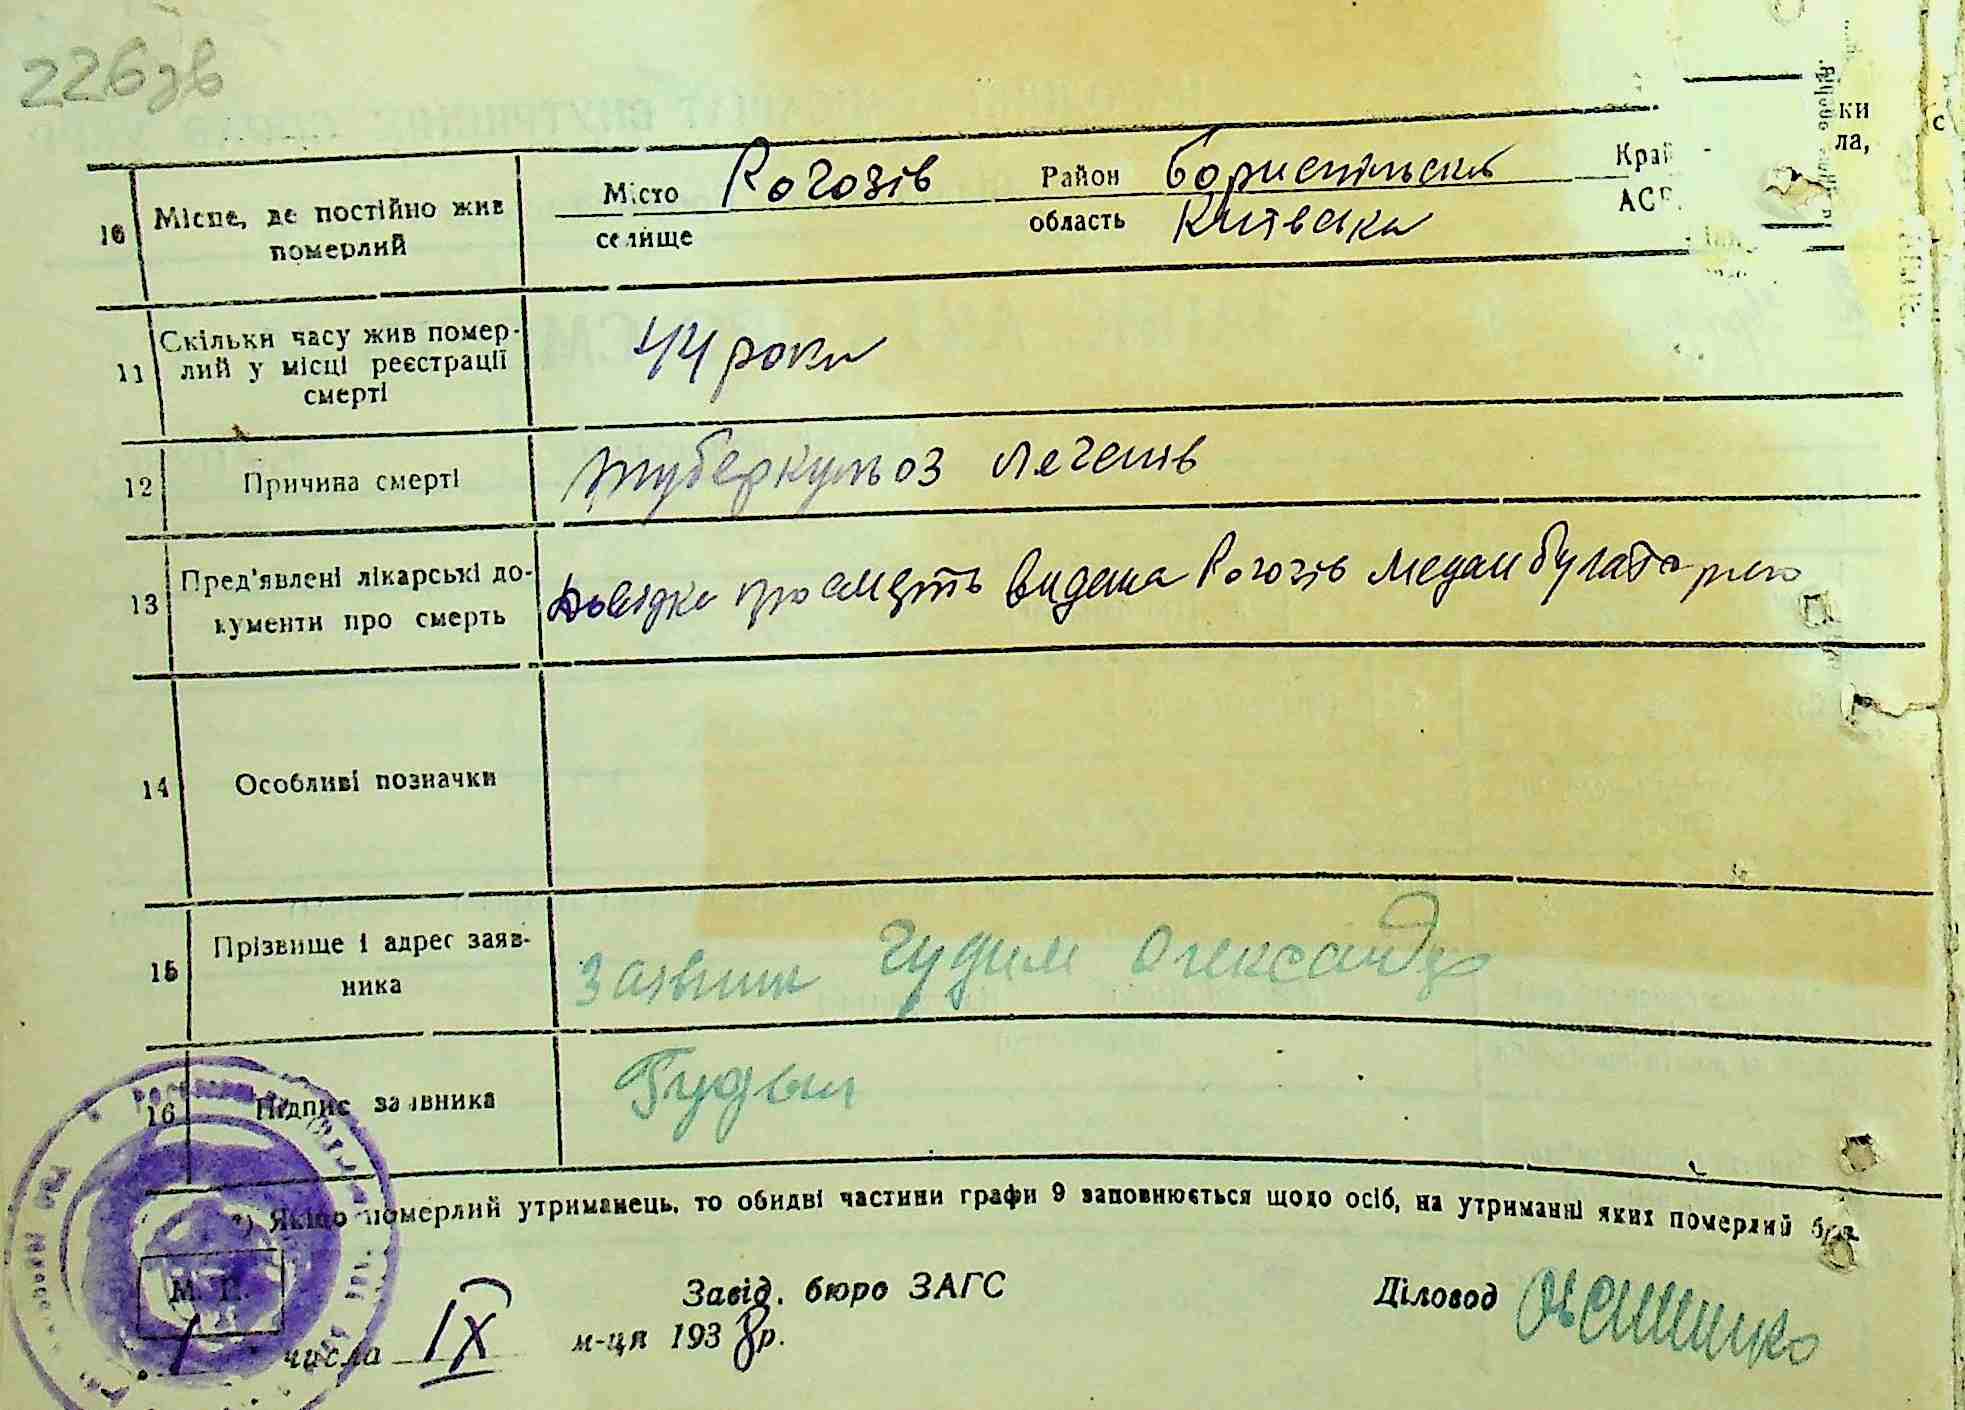 226зв
ки
ла,
с
10 Місце, де постійно жив померлий
Місто Рогозів Район Бориспільськ Край
селище область Київська АСР
11 Скільки часу жив помер-
лий у місці реєстрації
смерті
44 роки
12 Причина смерті
туберкульоз легенів
13 Пред'явлені лікарські до-
кументи про смерть
Довідка про смерть видана Рогозів медамбулаторією
14 Особливі позначки
15 Прізвище і адрес заяв-
ника
Заявник Гудим Олександр
16 Підпис заявника
Гудым
Якщо померлий утриманець, то обидві частини графи 9 заповнюється щодо осіб, на утриманні яких померлий був.
М. П.
Завід. бюро ЗАГС
Діловод
1 числа IX м-ця 1938 р.